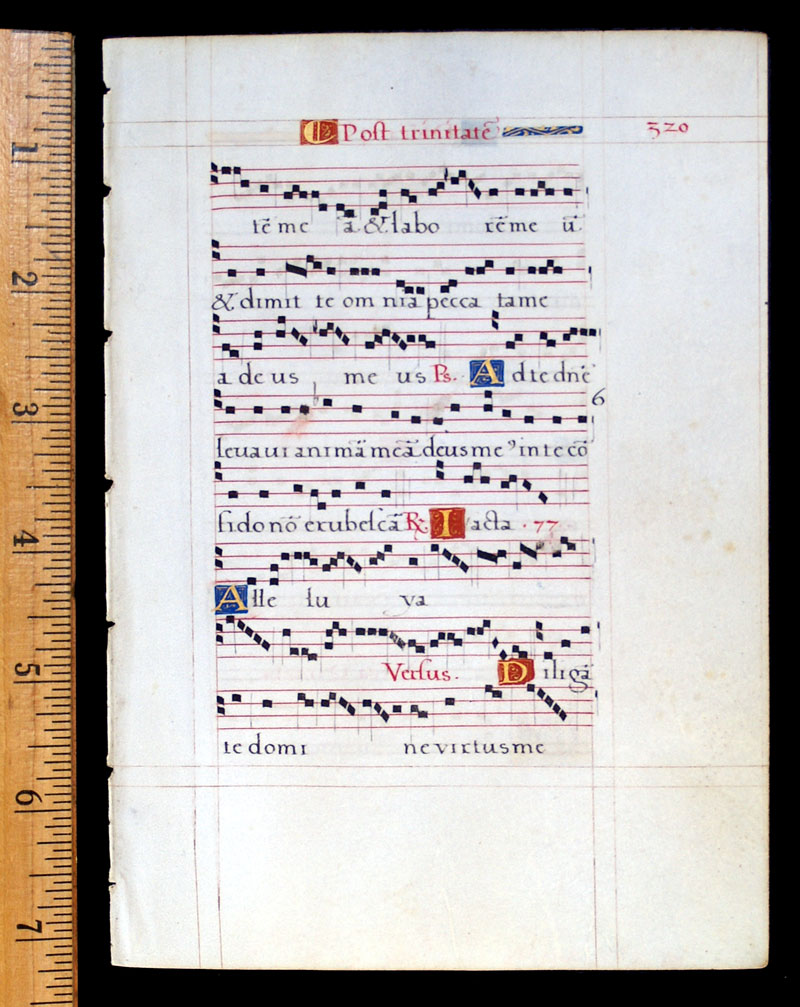 C Post trinitatē 320
tē me ā & labo rē me ū
& dimit te om nia pecca ta me
a de us me us Ps. A d te dn̄e
6
levavi animā meā deus me⁹ in te cō
fido nō erubescā ℞ I acta · 77
A lle lu ya
Versus. D iligā
te domi ne virtus me
1
2
3
4
5
6
7